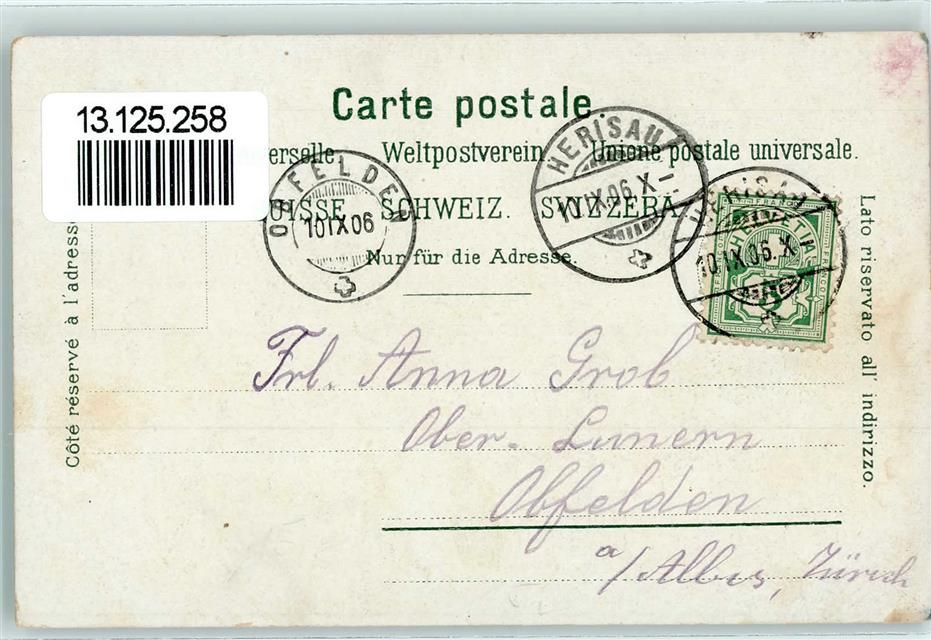 13.125.258
Carte postale.
erselle Weltpostverein Unione postale universale.
UISSE SCHWEIZ. SVIZZERA.
Nur für die Adresse.
Côté réservé à l'adresse
Lato riservato all' indirizzo.
OBFELDEN
10 IX 06
HERISAU
10.IX.06.X–
HERISAU
10.IX.06.X
FRANCO
HELVETIA
Frl. Anna Grob
Ober-Lunern
Obfelden
a/Albis, Zürich